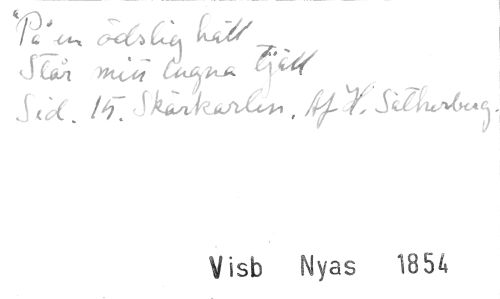 "På en ödslig häll
Står min lugna tjäll
Sid. 15. Skärkarlen. Af H. Sätherberg.
Visb Nyas 1854